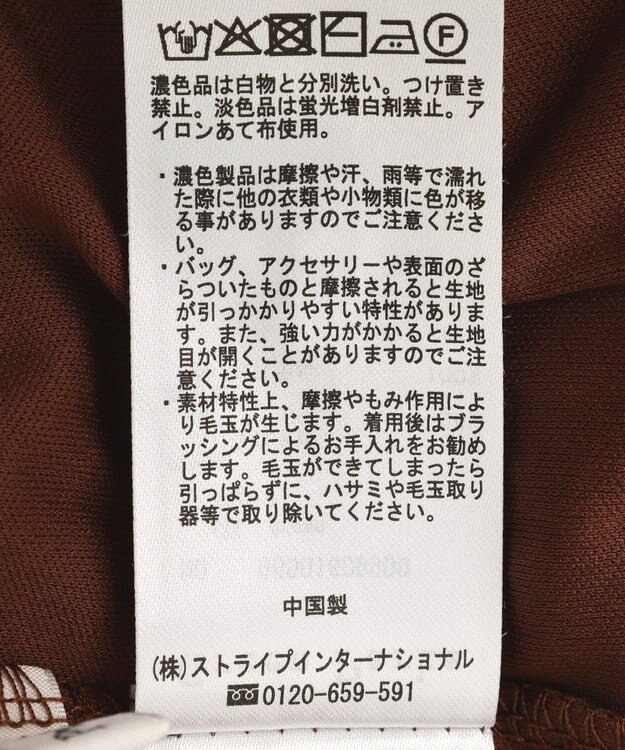 濃色品は白物と分別洗い。つけ置き
禁止。淡色品は蛍光増白剤禁止。ア
イロンあて布使用。
・濃色製品は摩擦や汗、雨等で濡れ
た際に他の衣類や小物類に色が移
る事がありますのでご注意くださ
い。
・バッグ、アクセサリーや表面のざ
らついたものと摩擦されると生地
が引っかかりやすい特性がありま
す。また、強い力がかかると生地
目が開くことがありますのでご注
意ください。
・素材特性上、摩擦やもみ作用によ
り毛玉が生じます。着用後はブラ
ッシングによるお手入れをお勧め
します。毛玉ができてしまったら
引っぱらずに、ハサミや毛玉取り
器等で取り除いてください。
中国製
(株)ストライプインターナショナル
0120-659-591